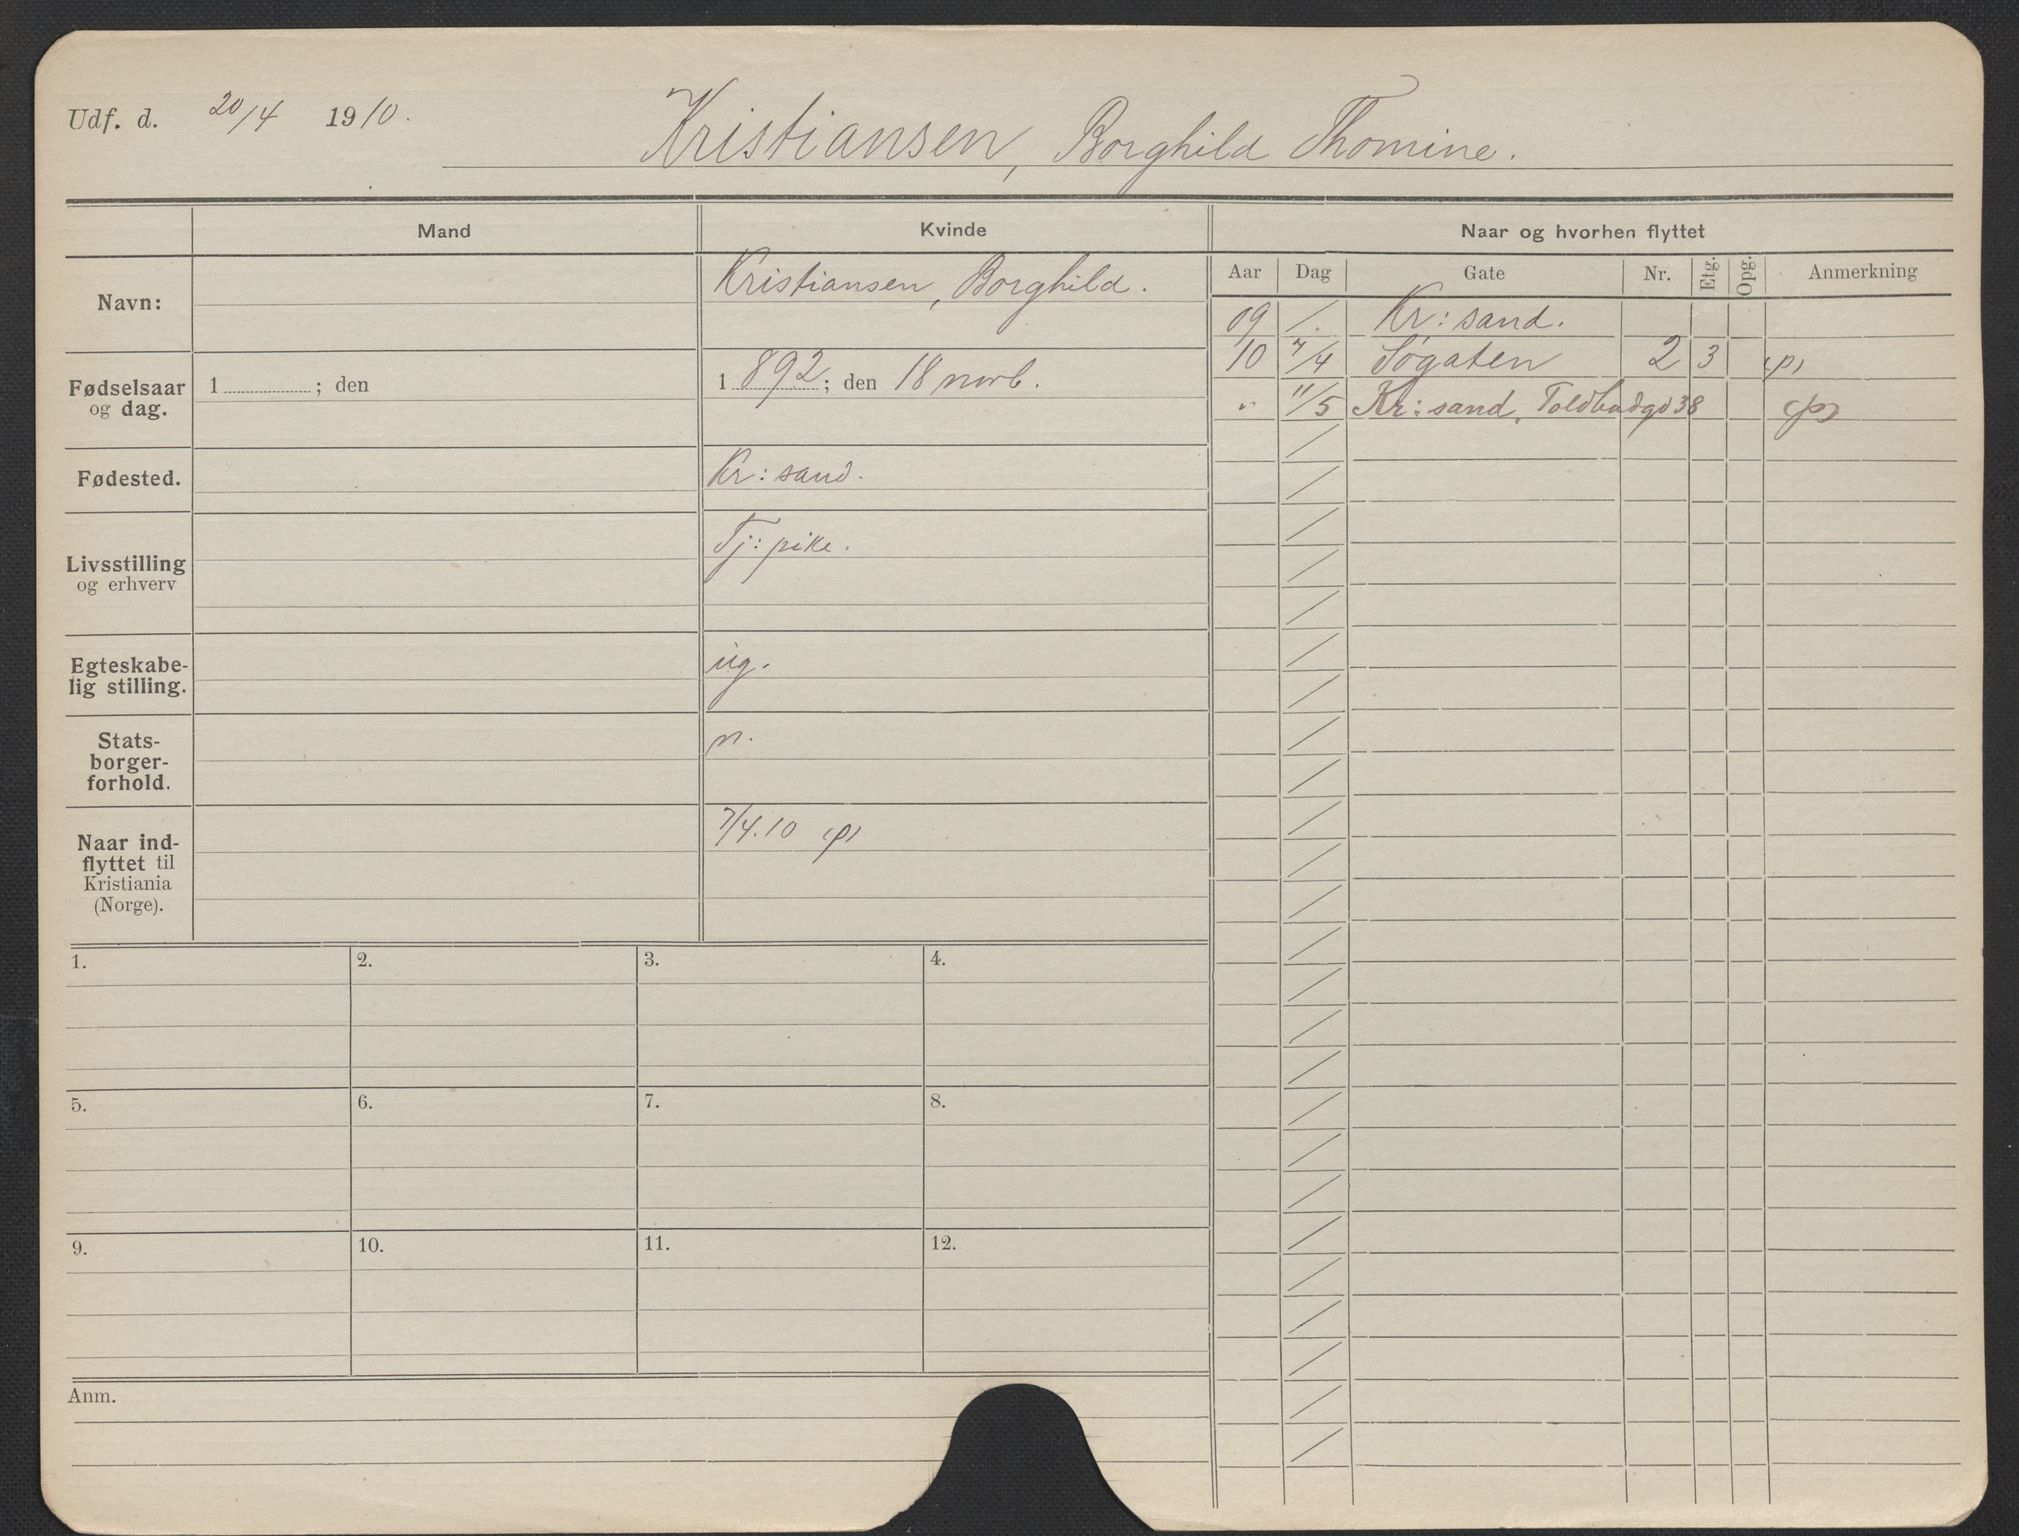 Udf. d. 20/4 1910.
Kristiansen, Borghild Thomine.
Mand
Kvinde
Naar og hvorhen flyttet
Navn:
Kristiansen, Borghild.
Fødselsaar
og dag.
1 ; den
1 892 ; den 18 novb.
Fødested.
Kr: sand.
Livsstilling
og erhverv
Tj: pike.
Egteskabe-
lig stilling.
ug.
Stats-
borger-
forhold.
n.
Naar ind-
flyttet til
Kristiania
(Norge).
7/4.10 (p)
Aar Dag Gate Nr. Etg. Opg. Anmerkning
09 / . Kr: sand.
10 7/4 Søgaten 2 3 (p)
" 11/5 Kr: sand, Toldbodgd 38 (p)
1. 2. 3. 4.
5. 6. 7. 8.
9. 10. 11. 12.
Anm.